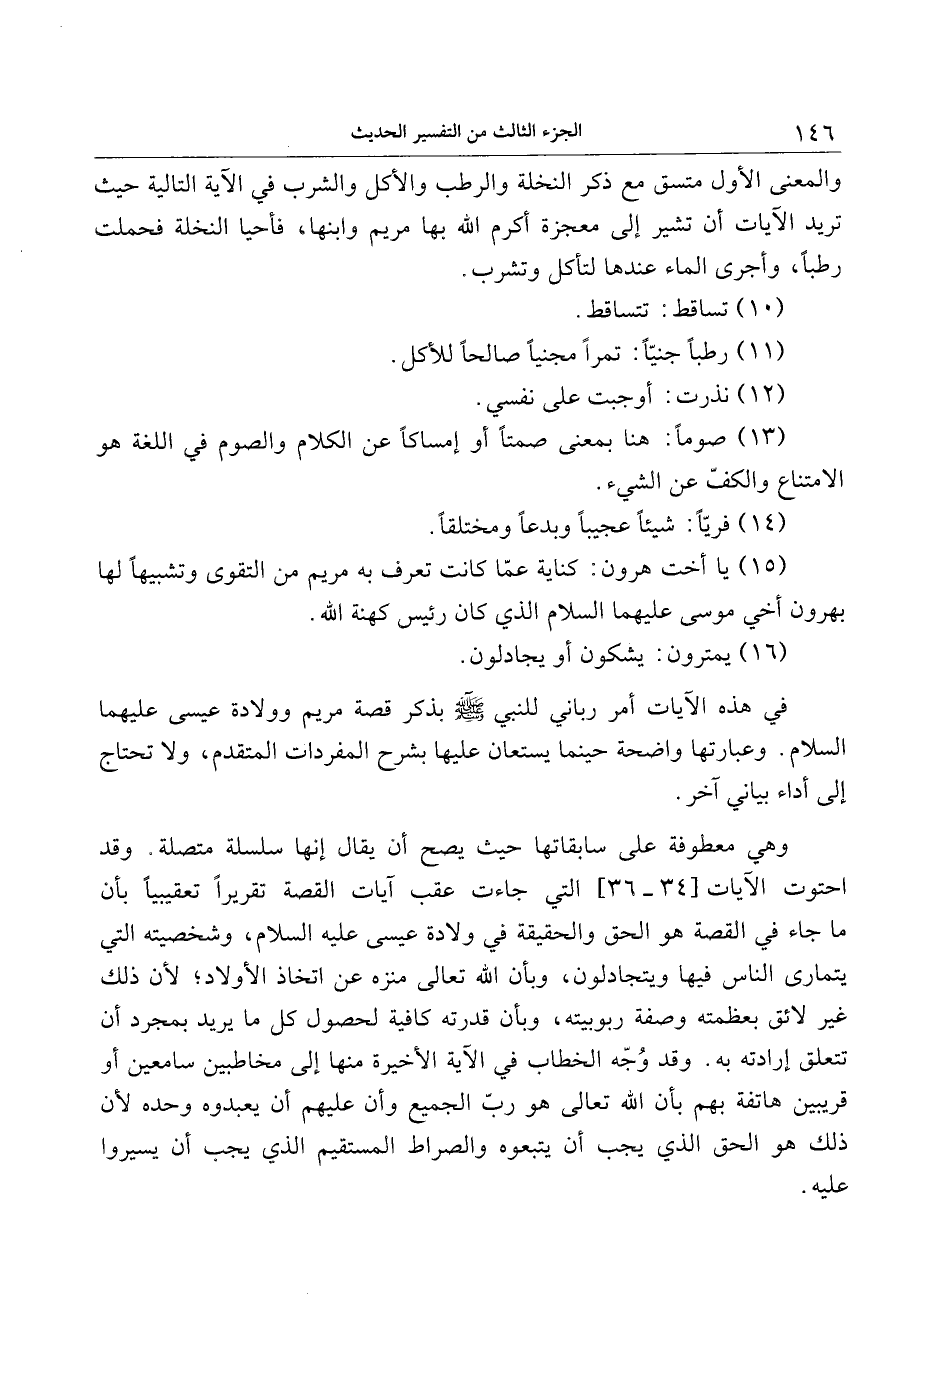 ١٤٦ الجزء الثالث من التفسير الحديث
والمعنى الأول متسق مع ذكر النخلة والرطب والأكل والشرب في الآية التالية حيث
تريد الآيات أن تشير إلى معجزة أكرم الله بها مريم وابنها، فأحيا النخلة فحملت
رطباً، وأجرى الماء عندها لتأكل وتشرب.
(١٠) تساقط: تتساقط.
(١١) رطباً جنيّاً: تمراً مجنياً صالحاً للأكل.
(١٢) نذرت: أوجبت على نفسي.
(١٣) صوماً: هنا بمعنى صمتاً أو إمساكاً عن الكلام والصوم في اللغة هو
الامتناع والكفّ عن الشيء.
(١٤) فريّاً: شيئاً عجيباً وبدعاً ومختلقاً.
(١٥) يا أخت هرون: كناية عمّا كانت تعرف به مريم من التقوى وتشبيهاً لها
بهرون أخي موسى عليهما السلام الذي كان رئيس كهنة الله.
(١٦) يمترون: يشكون أو يجادلون.
في هذه الآيات أمر رباني للنبي ﷺ بذكر قصة مريم وولادة عيسى عليهما
السلام. وعبارتها واضحة حينما يستعان عليها بشرح المفردات المتقدم، ولا تحتاج
إلى أداء بياني آخر.
وهي معطوفة على سابقاتها حيث يصح أن يقال إنها سلسلة متصلة. وقد
احتوت الآيات [٣٤ ـ ٣٦] التي جاءت عقب آيات القصة تقريراً تعقيبياً بأن
ما جاء في القصة هو الحق والحقيقة في ولادة عيسى عليه السلام، وشخصيته التي
يتمارى الناس فيها ويتجادلون، وبأن الله تعالى منزه عن اتخاذ الأولاد؛ لأن ذلك
غير لائق بعظمته وصفة ربوبيته، وبأن قدرته كافية لحصول كل ما يريد بمجرد أن
تتعلق إرادته به. وقد وُجّه الخطاب في الآية الأخيرة منها إلى مخاطبين سامعين أو
قريبين هاتفة بهم بأن الله تعالى هو ربّ الجميع وأن عليهم أن يعبدوه وحده لأن
ذلك هو الحق الذي يجب أن يتبعوه والصراط المستقيم الذي يجب أن يسيروا
عليه.